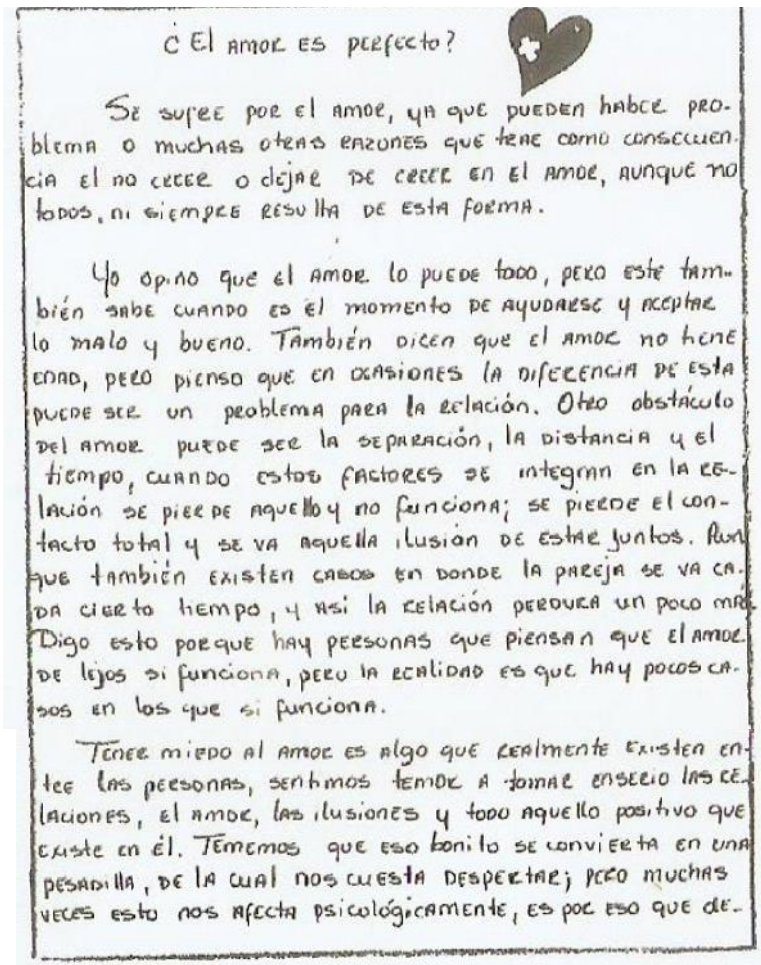 ¿El amor es perfecto?
Se sufre por el amor, ya que pueden haber pro-
blema o muchas otras razones que trae como consecuen-
cia el no creer o dejar de creer en el amor, aunque no
todos, ni siempre resulta de esta forma.
Yo opino que el amor lo puede todo, pero este tam-
bién sabe cuando es el momento de ayudarse y aceptar
lo malo y bueno. También dicen que el amor no tiene
edad, pero pienso que en ocasiones la diferencia de esta
puede ser un problema para la relación. Otro obstáculo
del amor puede ser la separación, la distancia y el
tiempo, cuando estos factores se integran en la re-
lación se pierde aquello y no funciona; se pierde el con-
tacto total y se va aquella ilusión de estar juntos. Aun
que también existen casos en donde la pareja se va ca-
da cierto tiempo, y así la relación perdura un poco más
Digo esto porque hay personas que piensan que el amor
de lejos si funciona, pero la realidad es que hay pocos ca-
sos en los que si funciona.
Tener miedo al amor es algo que realmente existen en-
tre las personas, sentimos temor a tomar enserio las re-
laciones, el amor, las ilusiones y todo aquello positivo que
existe en él. Tememos que eso bonito se convierta en una
pesadilla, de la cual nos cuesta despertar; pero muchas
veces esto nos afecta psicológicamente, es por eso que de-